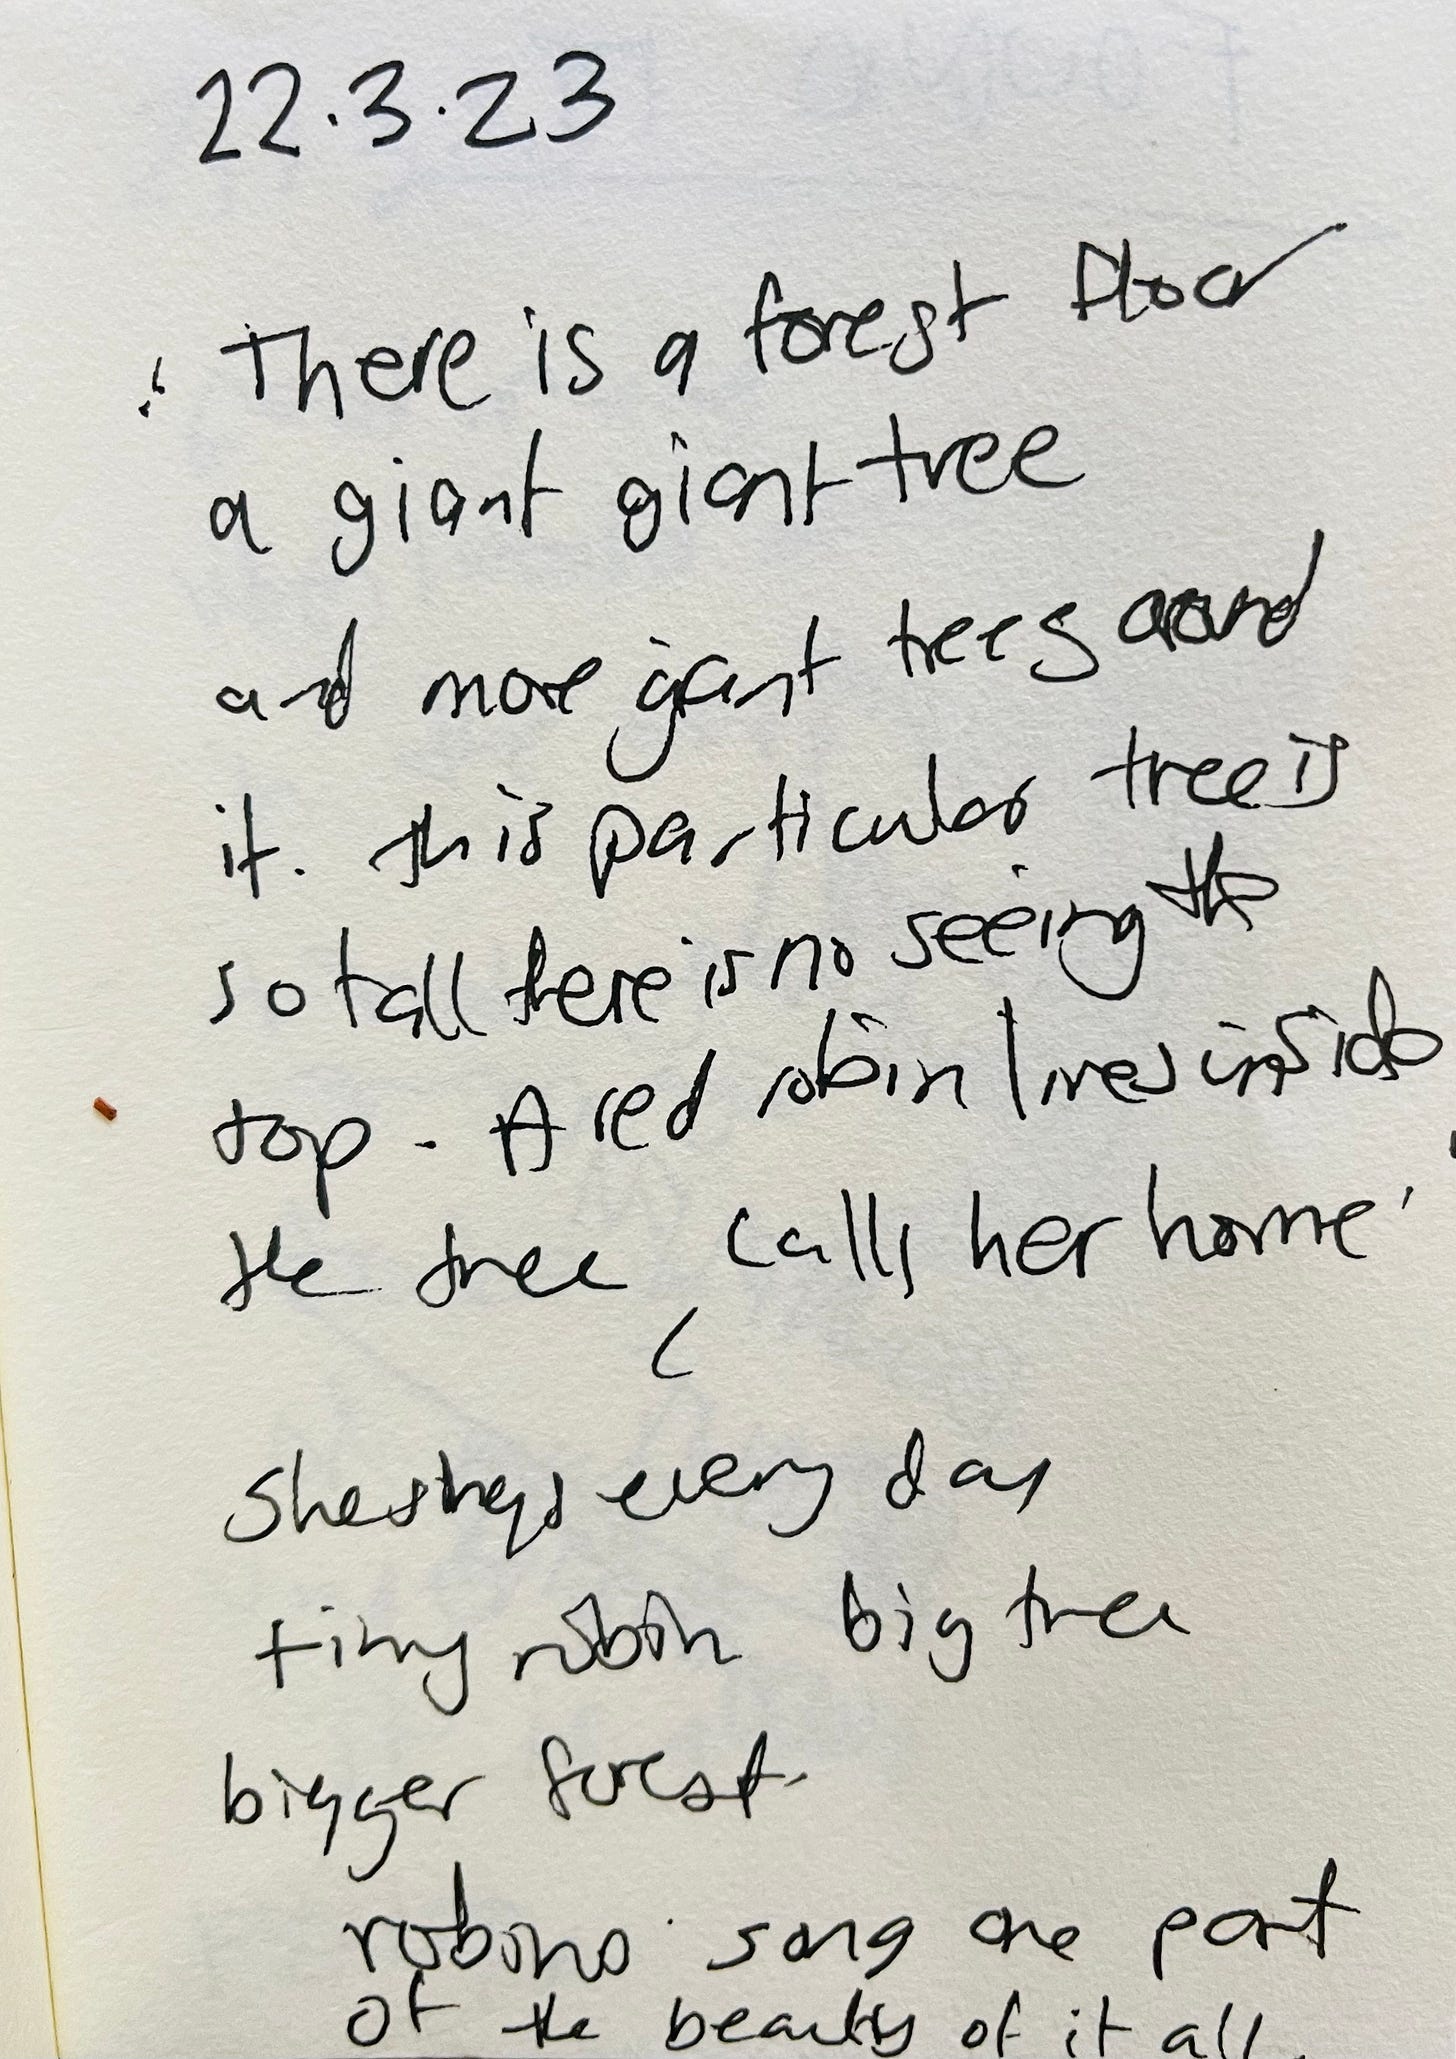 22.3.23
There is a forest floor
a giant giant tree
and more giant trees around
it. this particular tree is
so tall there is no seeing the
top. A red robin lives inside
the tree calls her home
She every day
tiny robin big tree
bigger forest.
robins song one part
of the beauty of it all.